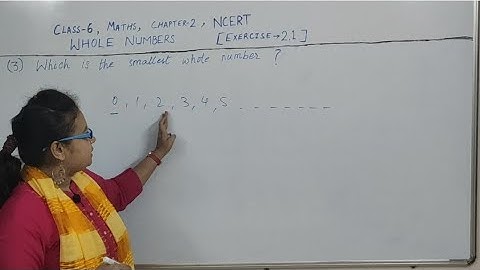 CLASS-6, MATHS, CHAPTER-2, NCERT
WHOLE NUMBERS [EXERCISE→2.1]
(3) Which is the smallest whole number ?
0, 1, 2, 3, 4, 5 - - - - - - -